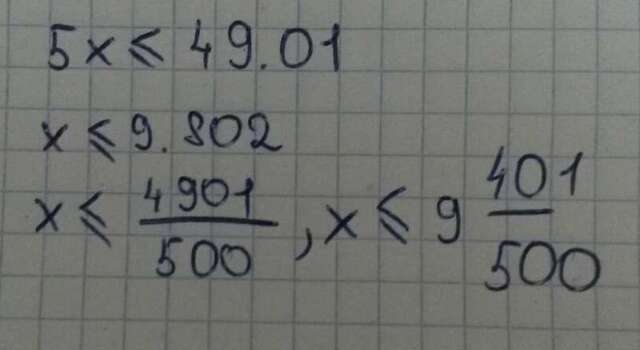 5x ≤ 49.01
x ≤ 9.802
x ≤ 4901/500, x ≤ 9 401/500